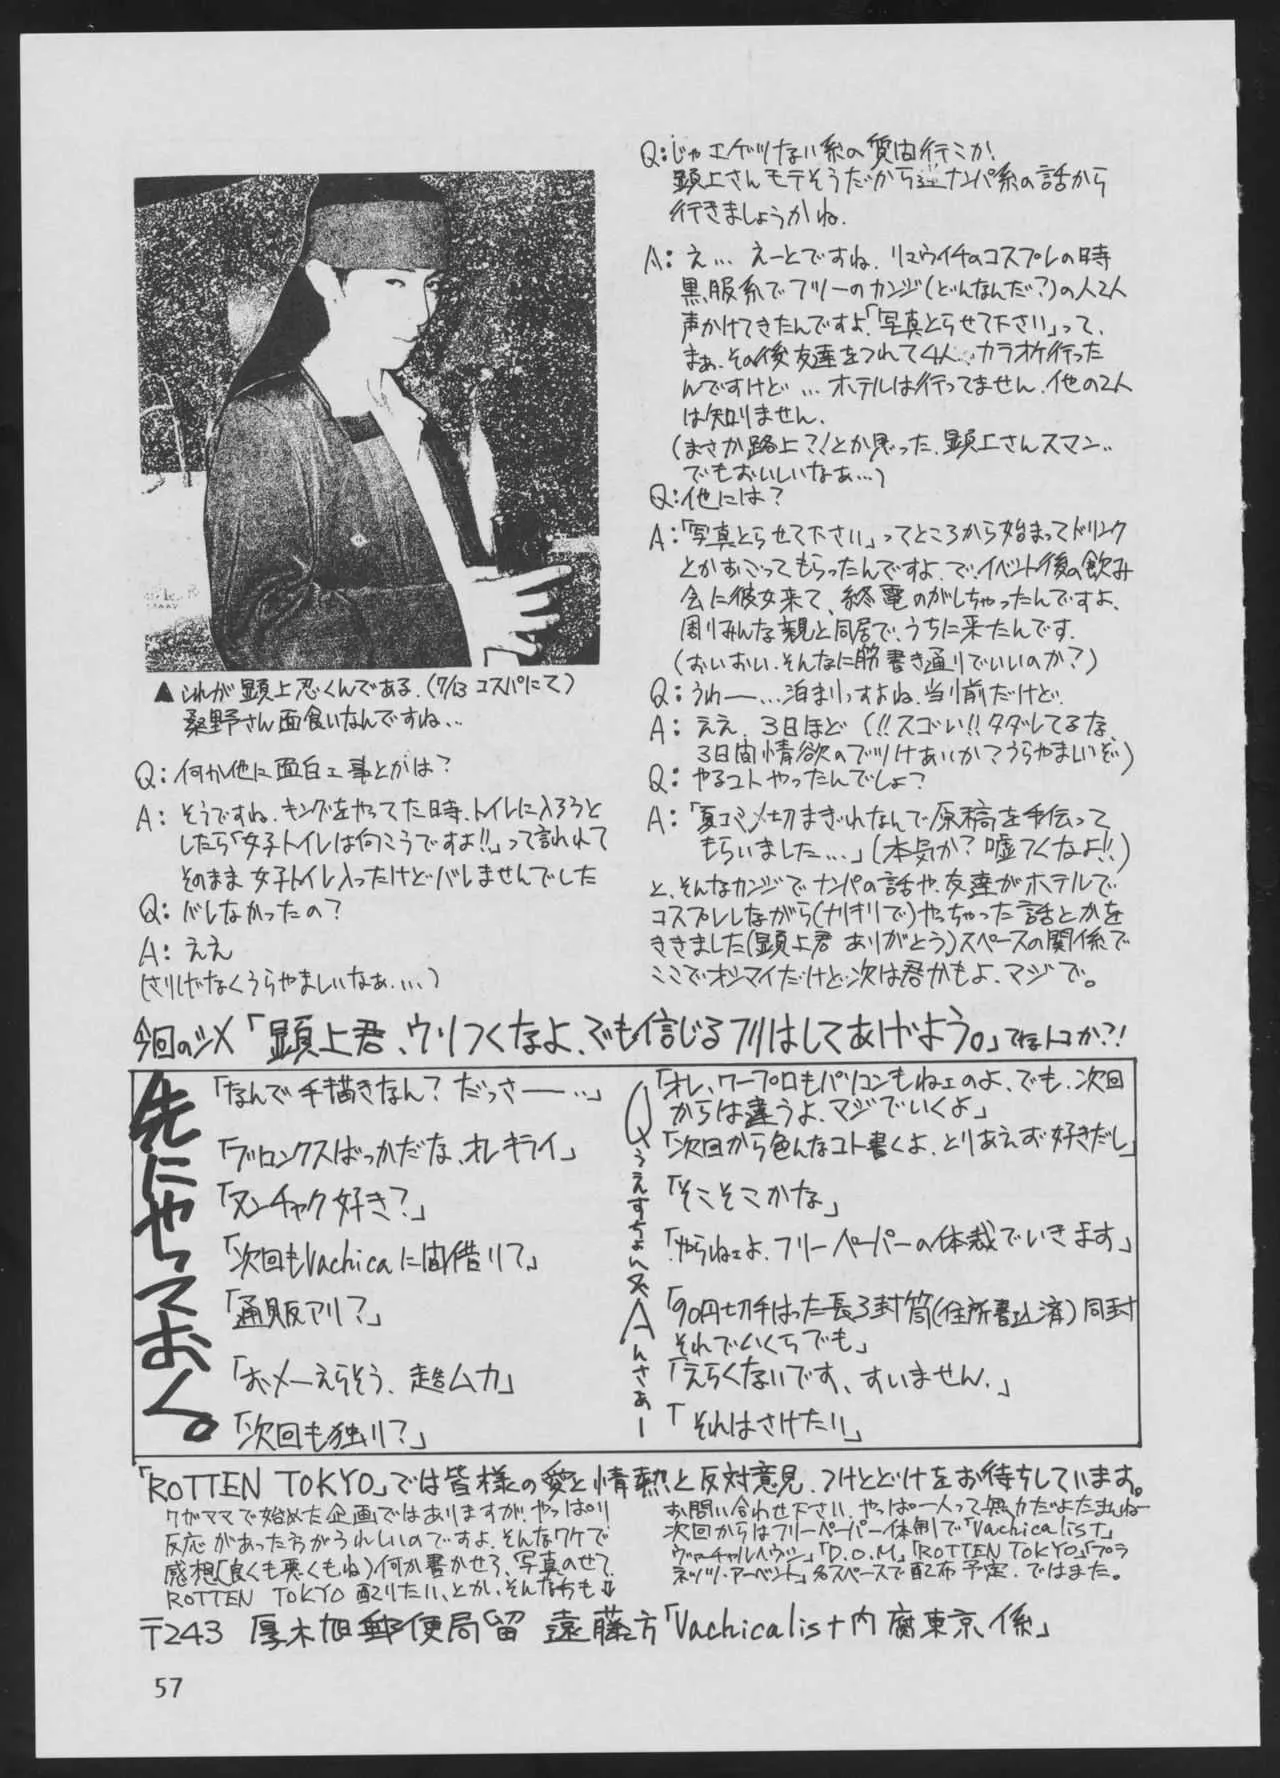 ▲これが顕上忍くんである.(7/13 コスパにて)
桑野さん面食いなんですね...
Q:何か他に面白エ事とかは?
A:そうですね.キングをやってた時.トイレに入ろうと
したら「女子トイレは向こうですよ!!」って言われて
そのまま女子トイレ入ったけどバレませんでした
Q:バレなかったの?
A:ええ
(さりげなくうらやましいなぁ....)
Q:じゃエゲツない系の質問行こか.
顕上さんモテそうだから逆ナンパ系の話から
行きましょうかね.
A:え... えーとですね.リュウイチのコスプレの時
黒服系でフリーのカンジ(どんなんだ?)の人2人
声かけてきたんですよ「写真とらせて下さい」って.
まぁ.その後友達をつれて4人.カラオケ行った
んですけど...ホテルは行ってません.他の2人
は知りません.
(まさか路上?!とか思った.顕上さんスマン..
でもおいしいなぁ...)
Q:他には?
A:「写真とらせて下さい」ってところから始まってドリンク
とかおごってもらったんですよ.で.イベント後の飲み
会に彼女来て、終電のがしちゃったんですよ.
周りみんな親と同居で、うちに来たんです.
(おいおい.そんなに筋書き通りでいいのか?)
Q:うわー...泊まりっすよね.当り前だけど.
A:ええ.3日ほど(!!スゴい!!タダレてるな.
3日間情欲のぶつけあいか?うらやましいぞ)
Q:やるコトやったんでしょ?
A:「夏コミ〆切まぎわなんで原稿を手伝って
もらいました...」(本気か?嘘つくなよ!!)
と、そんなカンジでナンパの話や、友達がホテルで
コスプレしながら(ナリキリで)やっちゃった話とかを
ききました(顕上君ありがとう)スペースの関係で
ここでオシマイだけど次は君かもよ、マジで。
今回のシメ「顕上君、ウソつくなよ、でも信じるフリはしてあげよう。」てなトコか?!
先にやっておく。
Qうえすちょん&Aんさぁー
「なんで手描きなん?だっさー...」
「オレ、ワープロもパソコンもねェのよ、でも、次回
からは違うよ.マジでいくよ」
「ブロンクスばっかだな、オレキライ」
「次回から色んなコト書くよ、とりあえず好きだし」
「ヌンチャク好き?」
「そこそこかな」
「次回もVachicaに間借りて」
「やらねェよ、フリーペーパーの体裁でいきます」
「通販アリ?」
「90円切手はった長3封筒(住所書込済)同封
それでいくらでも」
「おメーえらそう、超ムカ」
「えらくないです、すいません.」
「次回も独り?」
「それはさけたい」
「ROTTEN TOKYO」では皆様の愛と情熱と反対意見、つけとどけをお待ちしています。
ワガママで始めた企画ではありますが、やっぱり
反応があった方がうれしいのですよ、そんなワケで
感想(良くも悪くもね)何か書かせろ、写真のせて、
ROTTEN TOKYO 配りたい、とか、そんな方も⇩
お問い合わせ下さい.やっぱ一人って無力だよたまんねー
次回からはフリーペーパー体制で「Vachicalist」
ヴァーチャルヘヴン」「D.O.M」「ROTTEN TOKYO」「プラ
ネッツ・アーベント」各スペースで配布予定.ではまた。
〒243 厚木旭郵便局留 遠藤方「Vachicalist内 腐東京係」
57